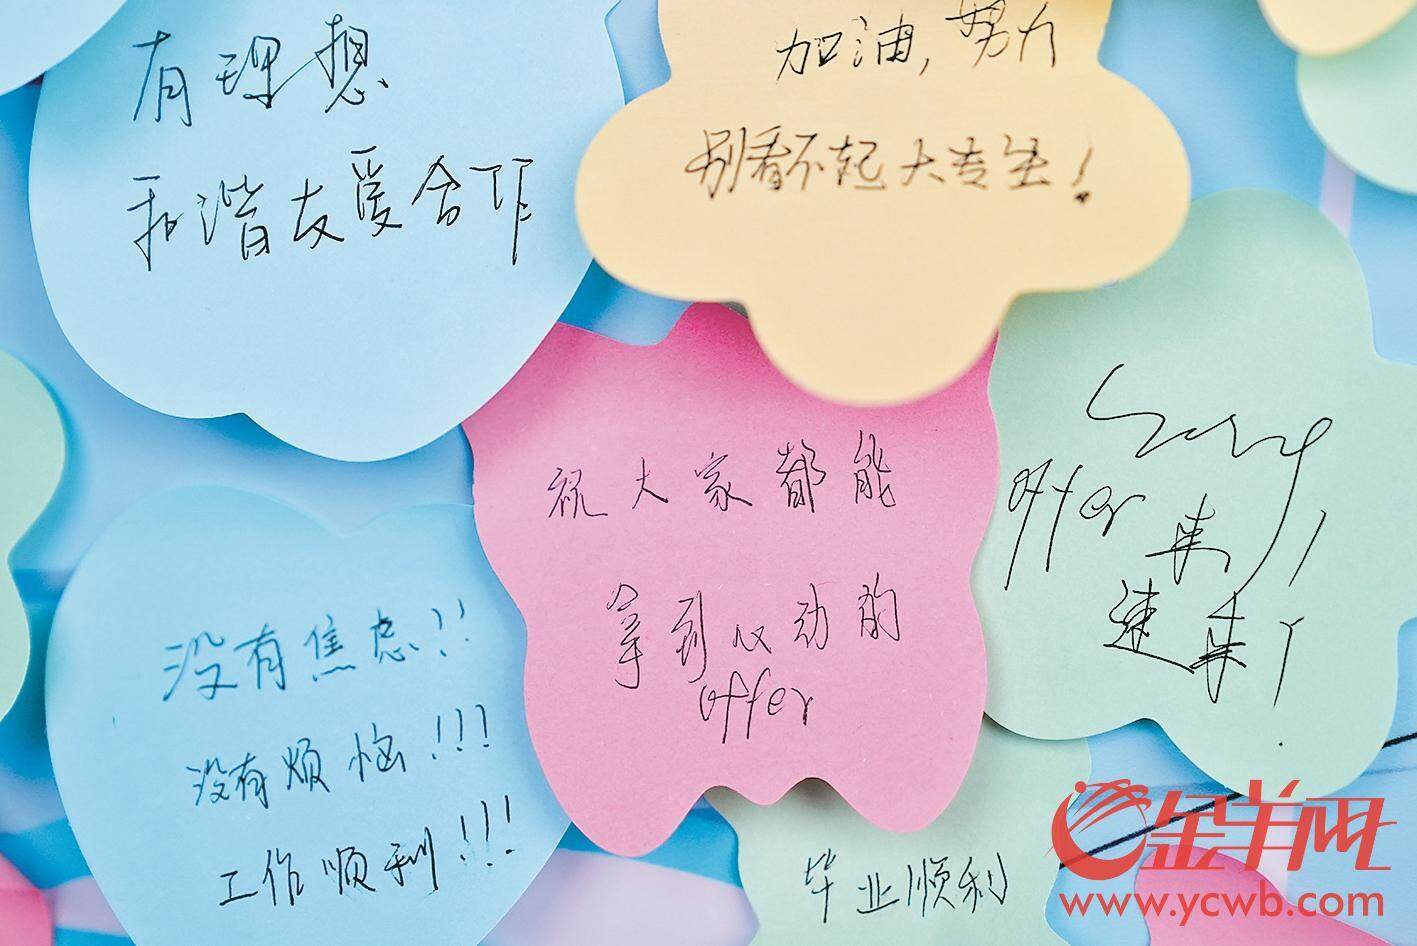 有理想
和谐友爱合作
加油,努力
别看不起大专生!
祝大家都能
拿到心动的
offer
offer来!
速来!
没有焦虑!!
没有烦恼!!!
工作顺利!!!
毕业顺利
金羊网
www.ycwb.com